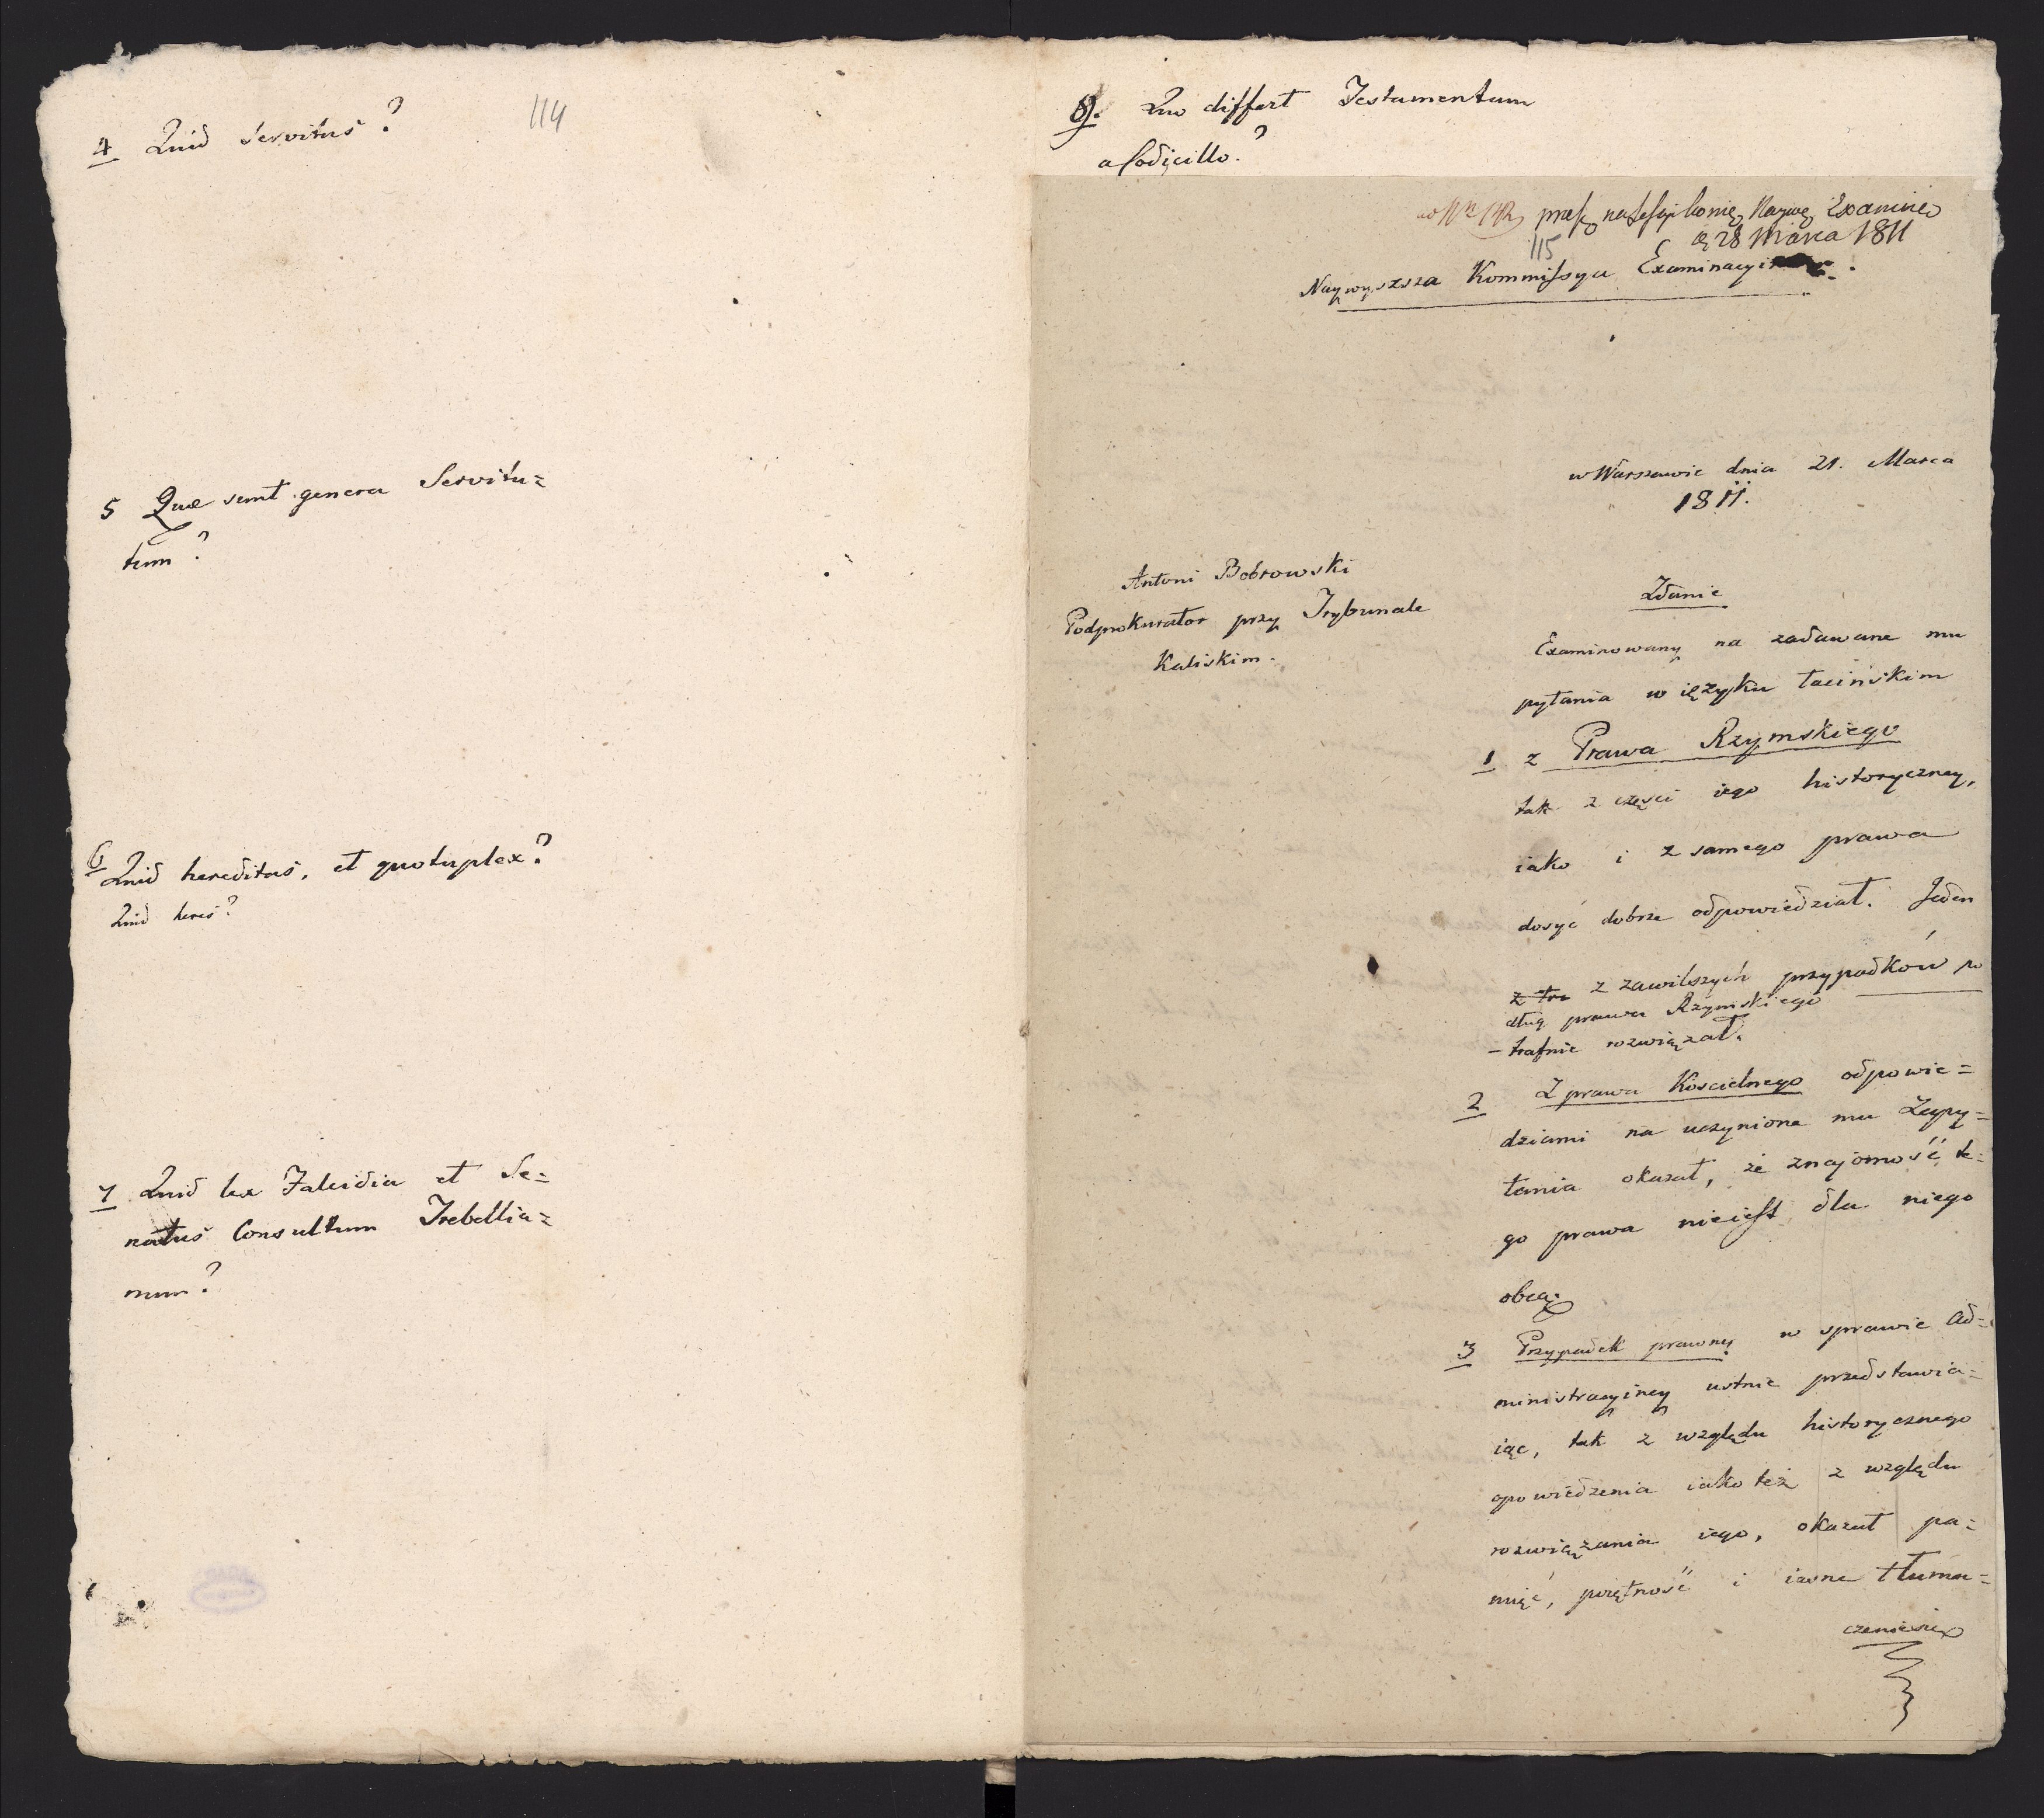 114
4 Quid Servitus?
5 Quae sunt genera Servitu=
tum?
6 Quid hereditas, et quotuplex?
Quid heres?
7 Quid lex Falcidia et Se=
natus Consultum Trebellia=
num?
8. Quo differt Testamentum
a Codicillo?
Examin
28 Marca 1811
115
Naywyższa Kommissya Examinacyina.
w Warszawie dnia 21. Marca
1811.
Antoni Bobrowski
Podprokurator przy Trybunale
Kaliskim.
Zdanie
Examinowany na zadawane mu
pytania w ięzyku łacińskim
1 z Prawa Rzymskiego
tak z części iego historyczney,
iako i z samego prawa
dosyć dobrze odpowiedział. Jeden
z zawilszych przypadków po
dług prawa Rzymskiego
– trafnie rozwiązał.
2 Z prawa Kościelnego odpowie=
dziami na uczynione mu Zapy=
tania okazał, że znajomość te=
go prawa nieiest dla niego
obcą.
3 Przypadek prawny w sprawie Ad=
ministracyiney ustnie przedstawia=
iąc, tak z względu historycznego
opowiedzenia iako też z względu
rozwiązania iego, okazał pa=
mięć, poiętność i iasne tłuma=
czeniesię